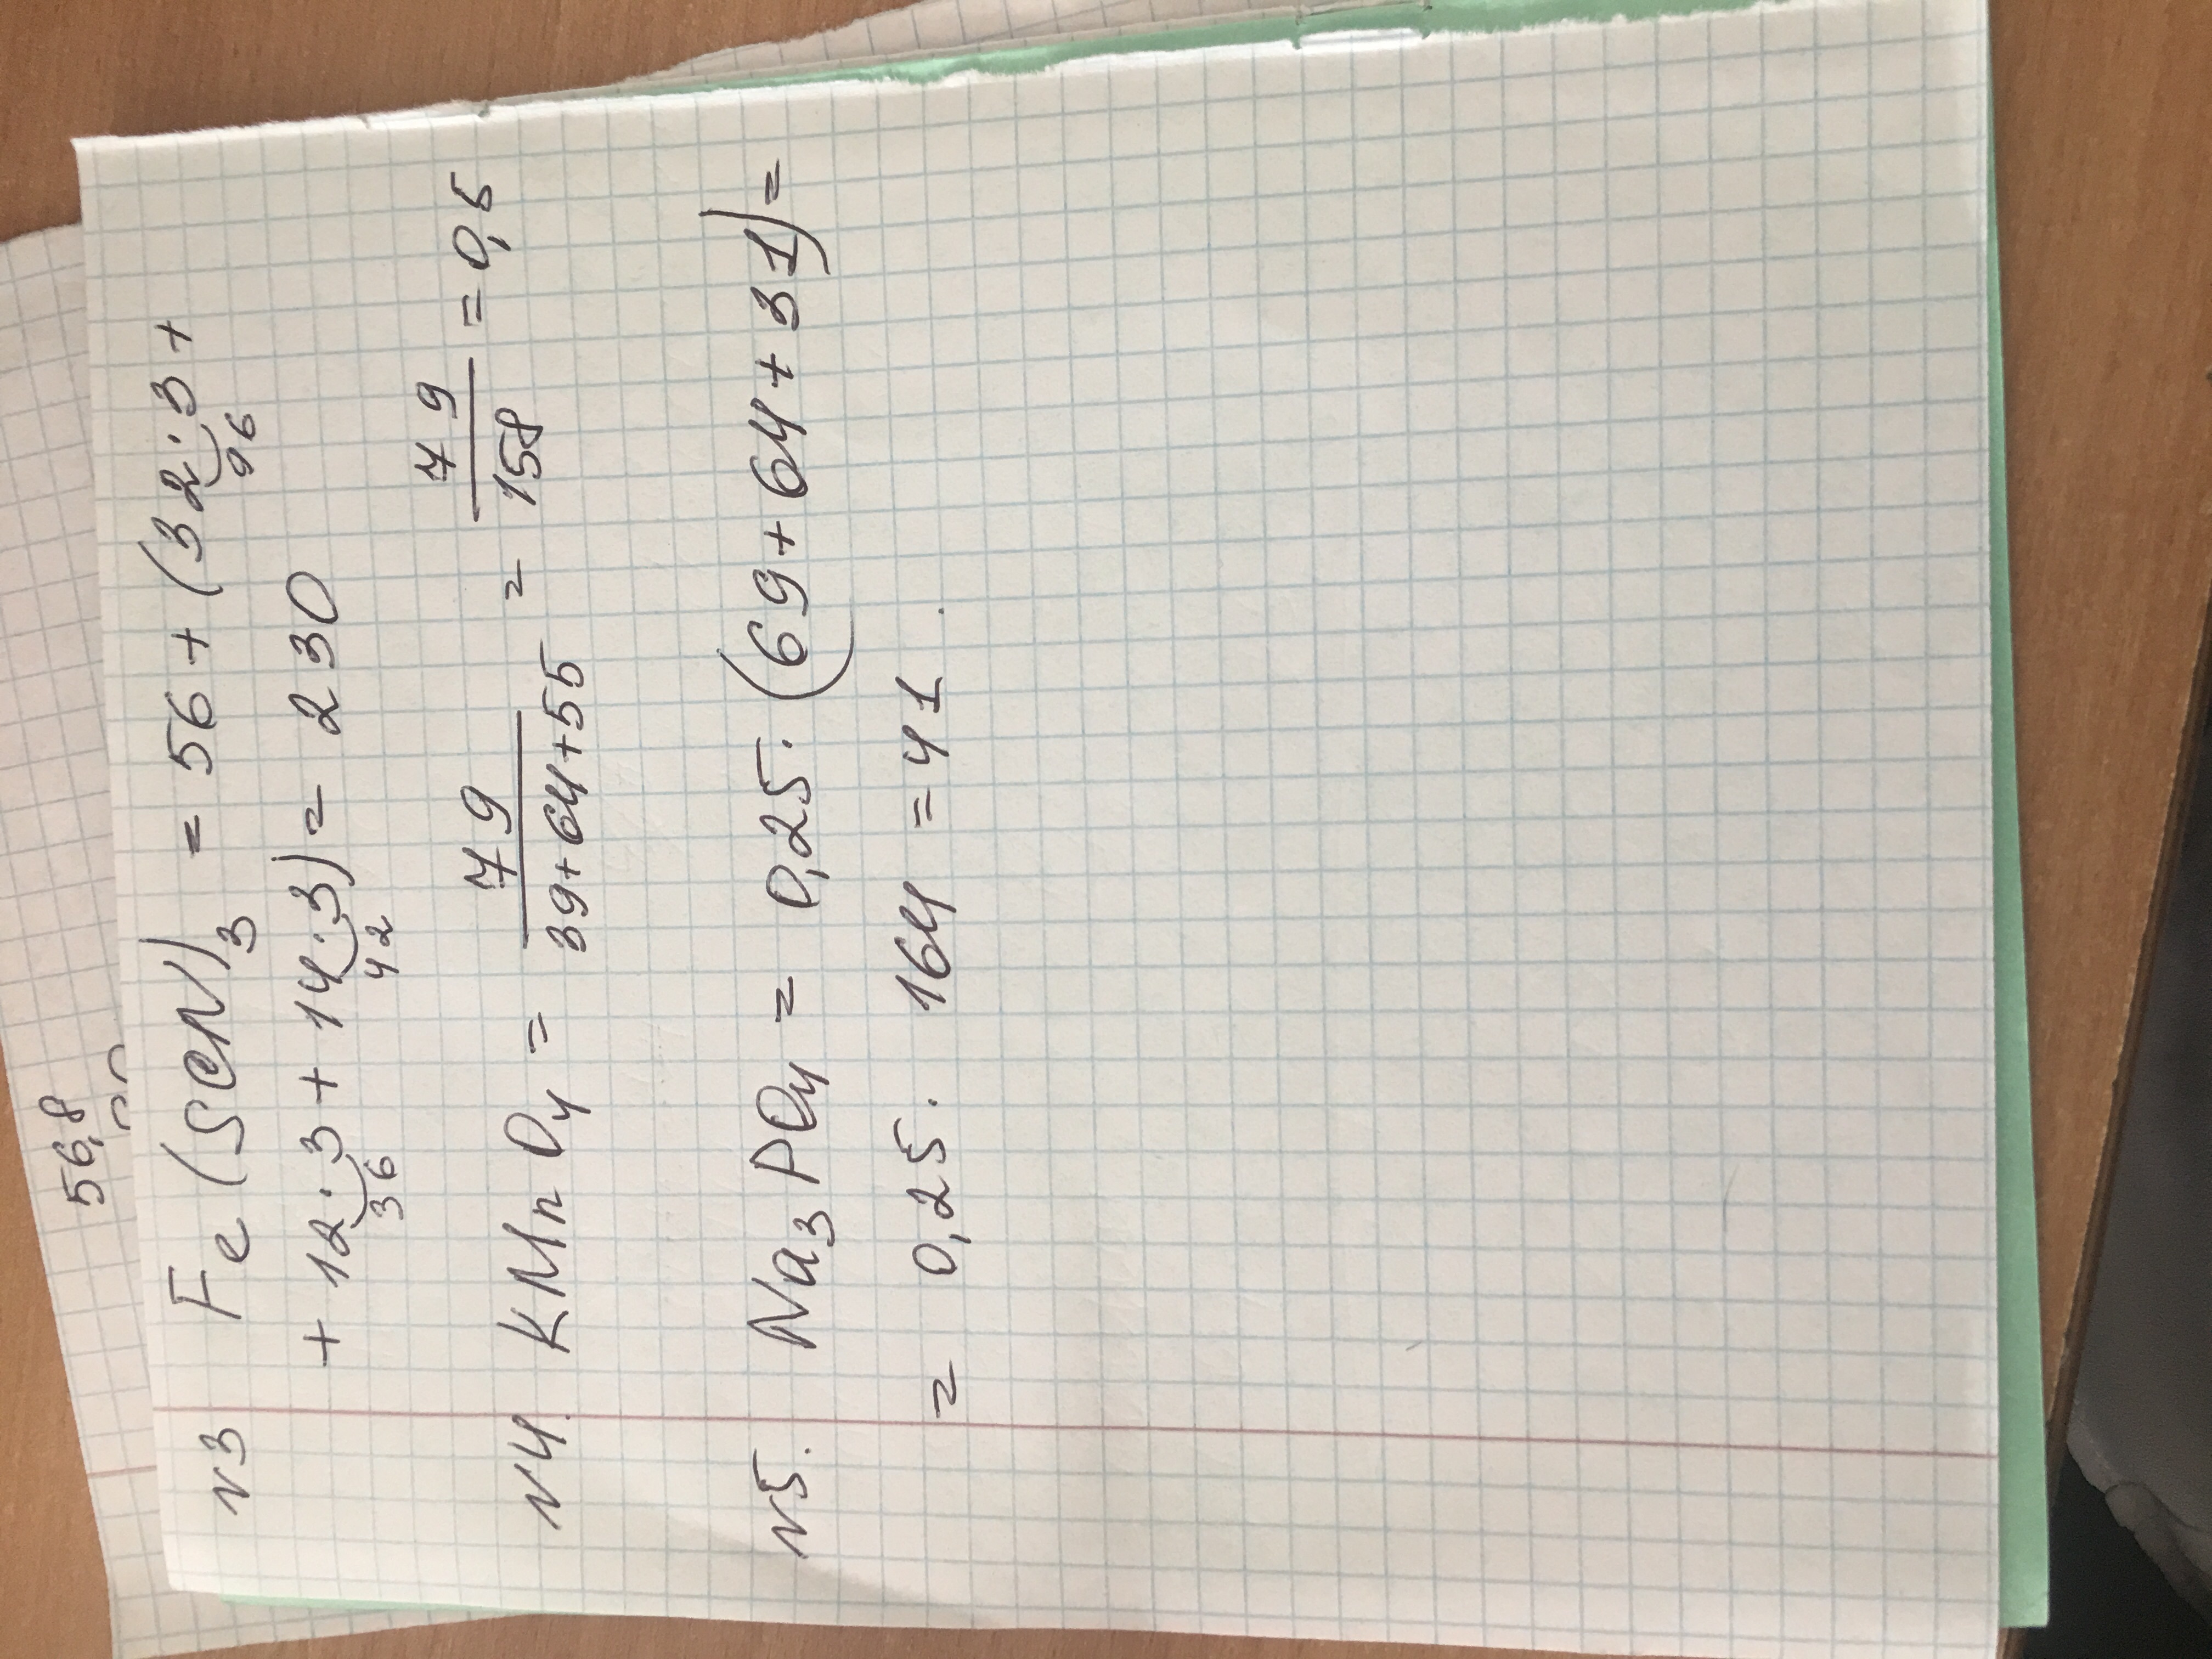 56,8
№3 Fe(SCN)₃ = 56 + (32·3 +
96
+ 12·3 + 14·3) = 230
36 42
№4. KMnO₄ = 79/39+64+55 = 79/158 = 0,5
№5. Na₃PO₄ = 0,25·(69+64+31) =
= 0,25·164 = 41.